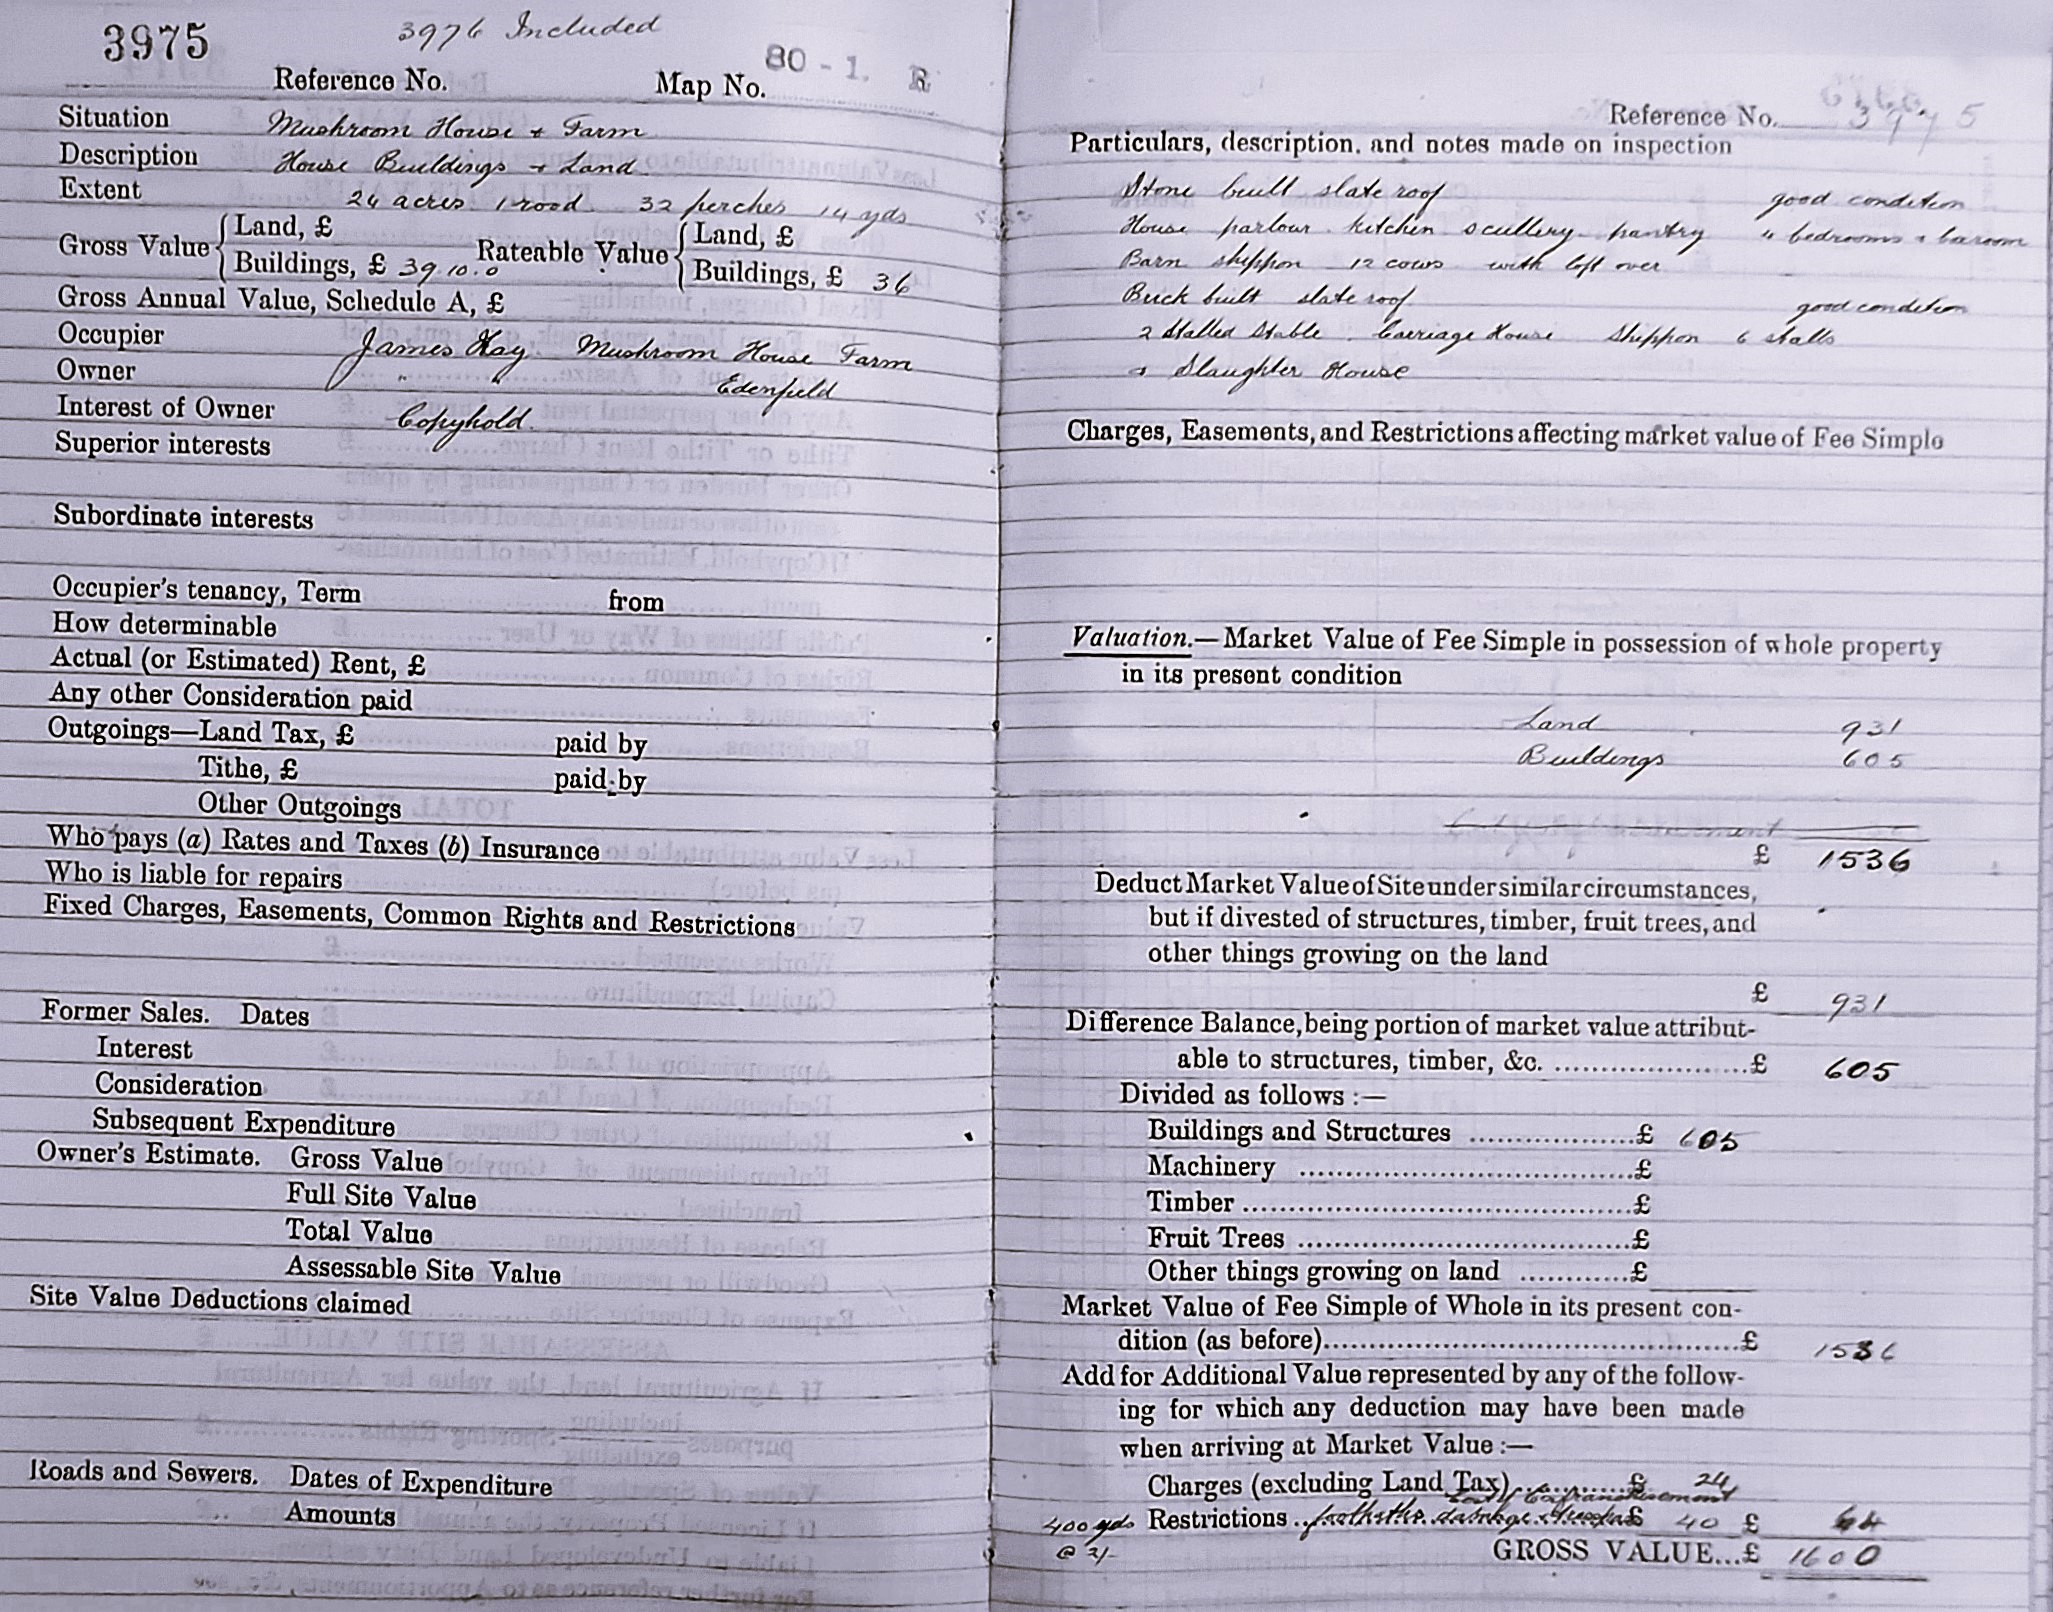 3975
3976 Included
Reference No. Map No. 80 - 1. R
Situation Mushroom House & Farm
Description House Buildings & Land
Extent 24 acres 1 rood 32 perches 14 yds
Gross Value { Land, £ Rateable Value { Land, £
Buildings, £ 39.10.0 Buildings, £ 36
Gross Annual Value, Schedule A, £
Occupier James Kay Mushroom House Farm
Owner " " Edenfield
Interest of Owner Copyhold.
Superior interests
Subordinate interests
Occupier's tenancy, Term from
How determinable
Actual (or Estimated) Rent, £
Any other Consideration paid
Outgoings—Land Tax, £ paid by
Tithe, £ paid by
Other Outgoings
Who pays (a) Rates and Taxes (b) Insurance
Who is liable for repairs
Fixed Charges, Easements, Common Rights and Restrictions
Former Sales. Dates
Interest
Consideration
Subsequent Expenditure
Owner's Estimate. Gross Value
Full Site Value
Total Value
Assessable Site Value
Site Value Deductions claimed
Roads and Sewers. Dates of Expenditure
Amounts
Reference No. 3975
Particulars, description, and notes made on inspection
Stone built slate roof good condition
House parlour kitchen scullery pantry 4 bedrooms &
Barn shippon 12 cows with loft over
Brick built slate roof good condition
2 stalled stable. Carriage House Shippon 6 stalls
& Slaughter House
Charges, Easements, and Restrictions affecting market value of Fee Simple
Valuation.—Market Value of Fee Simple in possession of whole property
in its present condition
Land 931
Buildings 605
£ 1536
Deduct Market Value of Site under similar circumstances,
but if divested of structures, timber, fruit trees, and
other things growing on the land
£ 931
Difference Balance, being portion of market value attribut-
able to structures, timber, &c. ....................£ 605
Divided as follows :—
Buildings and Structures ....................£ 605
Machinery ....................£
Timber ....................£
Fruit Trees ....................£
Other things growing on land ............£
Market Value of Fee Simple of Whole in its present con-
dition (as before)....................£ 1536
Add for Additional Value represented by any of the follow-
ing for which any deduction may have been made
when arriving at Market Value :—
Charges (excluding Land Tax) ........£ 24
Enfranchisement
400 yds Restrictions .. footpaths £ 40 £ 64
@ 2/- GROSS VALUE...£ 1600